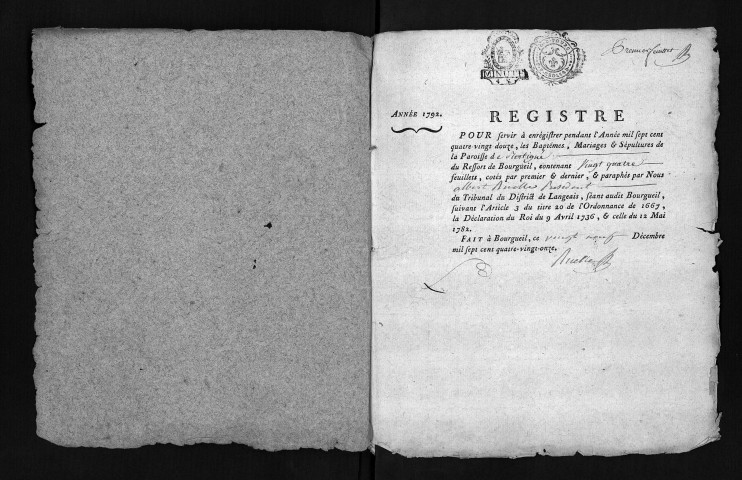 MINUTE
ANNÉE 1792.
REGISTRE
POUR servir à enrégistrer pendant l'Année mil sept cent
quatre-vingt douze, les Baptêmes, Mariages & Sépultures de
la Paroisse de
du Ressort de Bourgueil, contenant Vingt quatre
feuillets, cotés par premier & dernier, & paraphés par Nous
albert Ruelle President
du Tribunal du District de Langeais, séant audit Bourgueil,
suivant l'Article 3 du titre 20 de l'Ordonnance de 1667,
la Déclaration du Roi du 9 Avril 1736, & celle du 12 Mai
1782.
FAIT à Bourgueil, ce vingt neuf Décembre
mil sept cent quatre-vingt-onze.
Ruelle